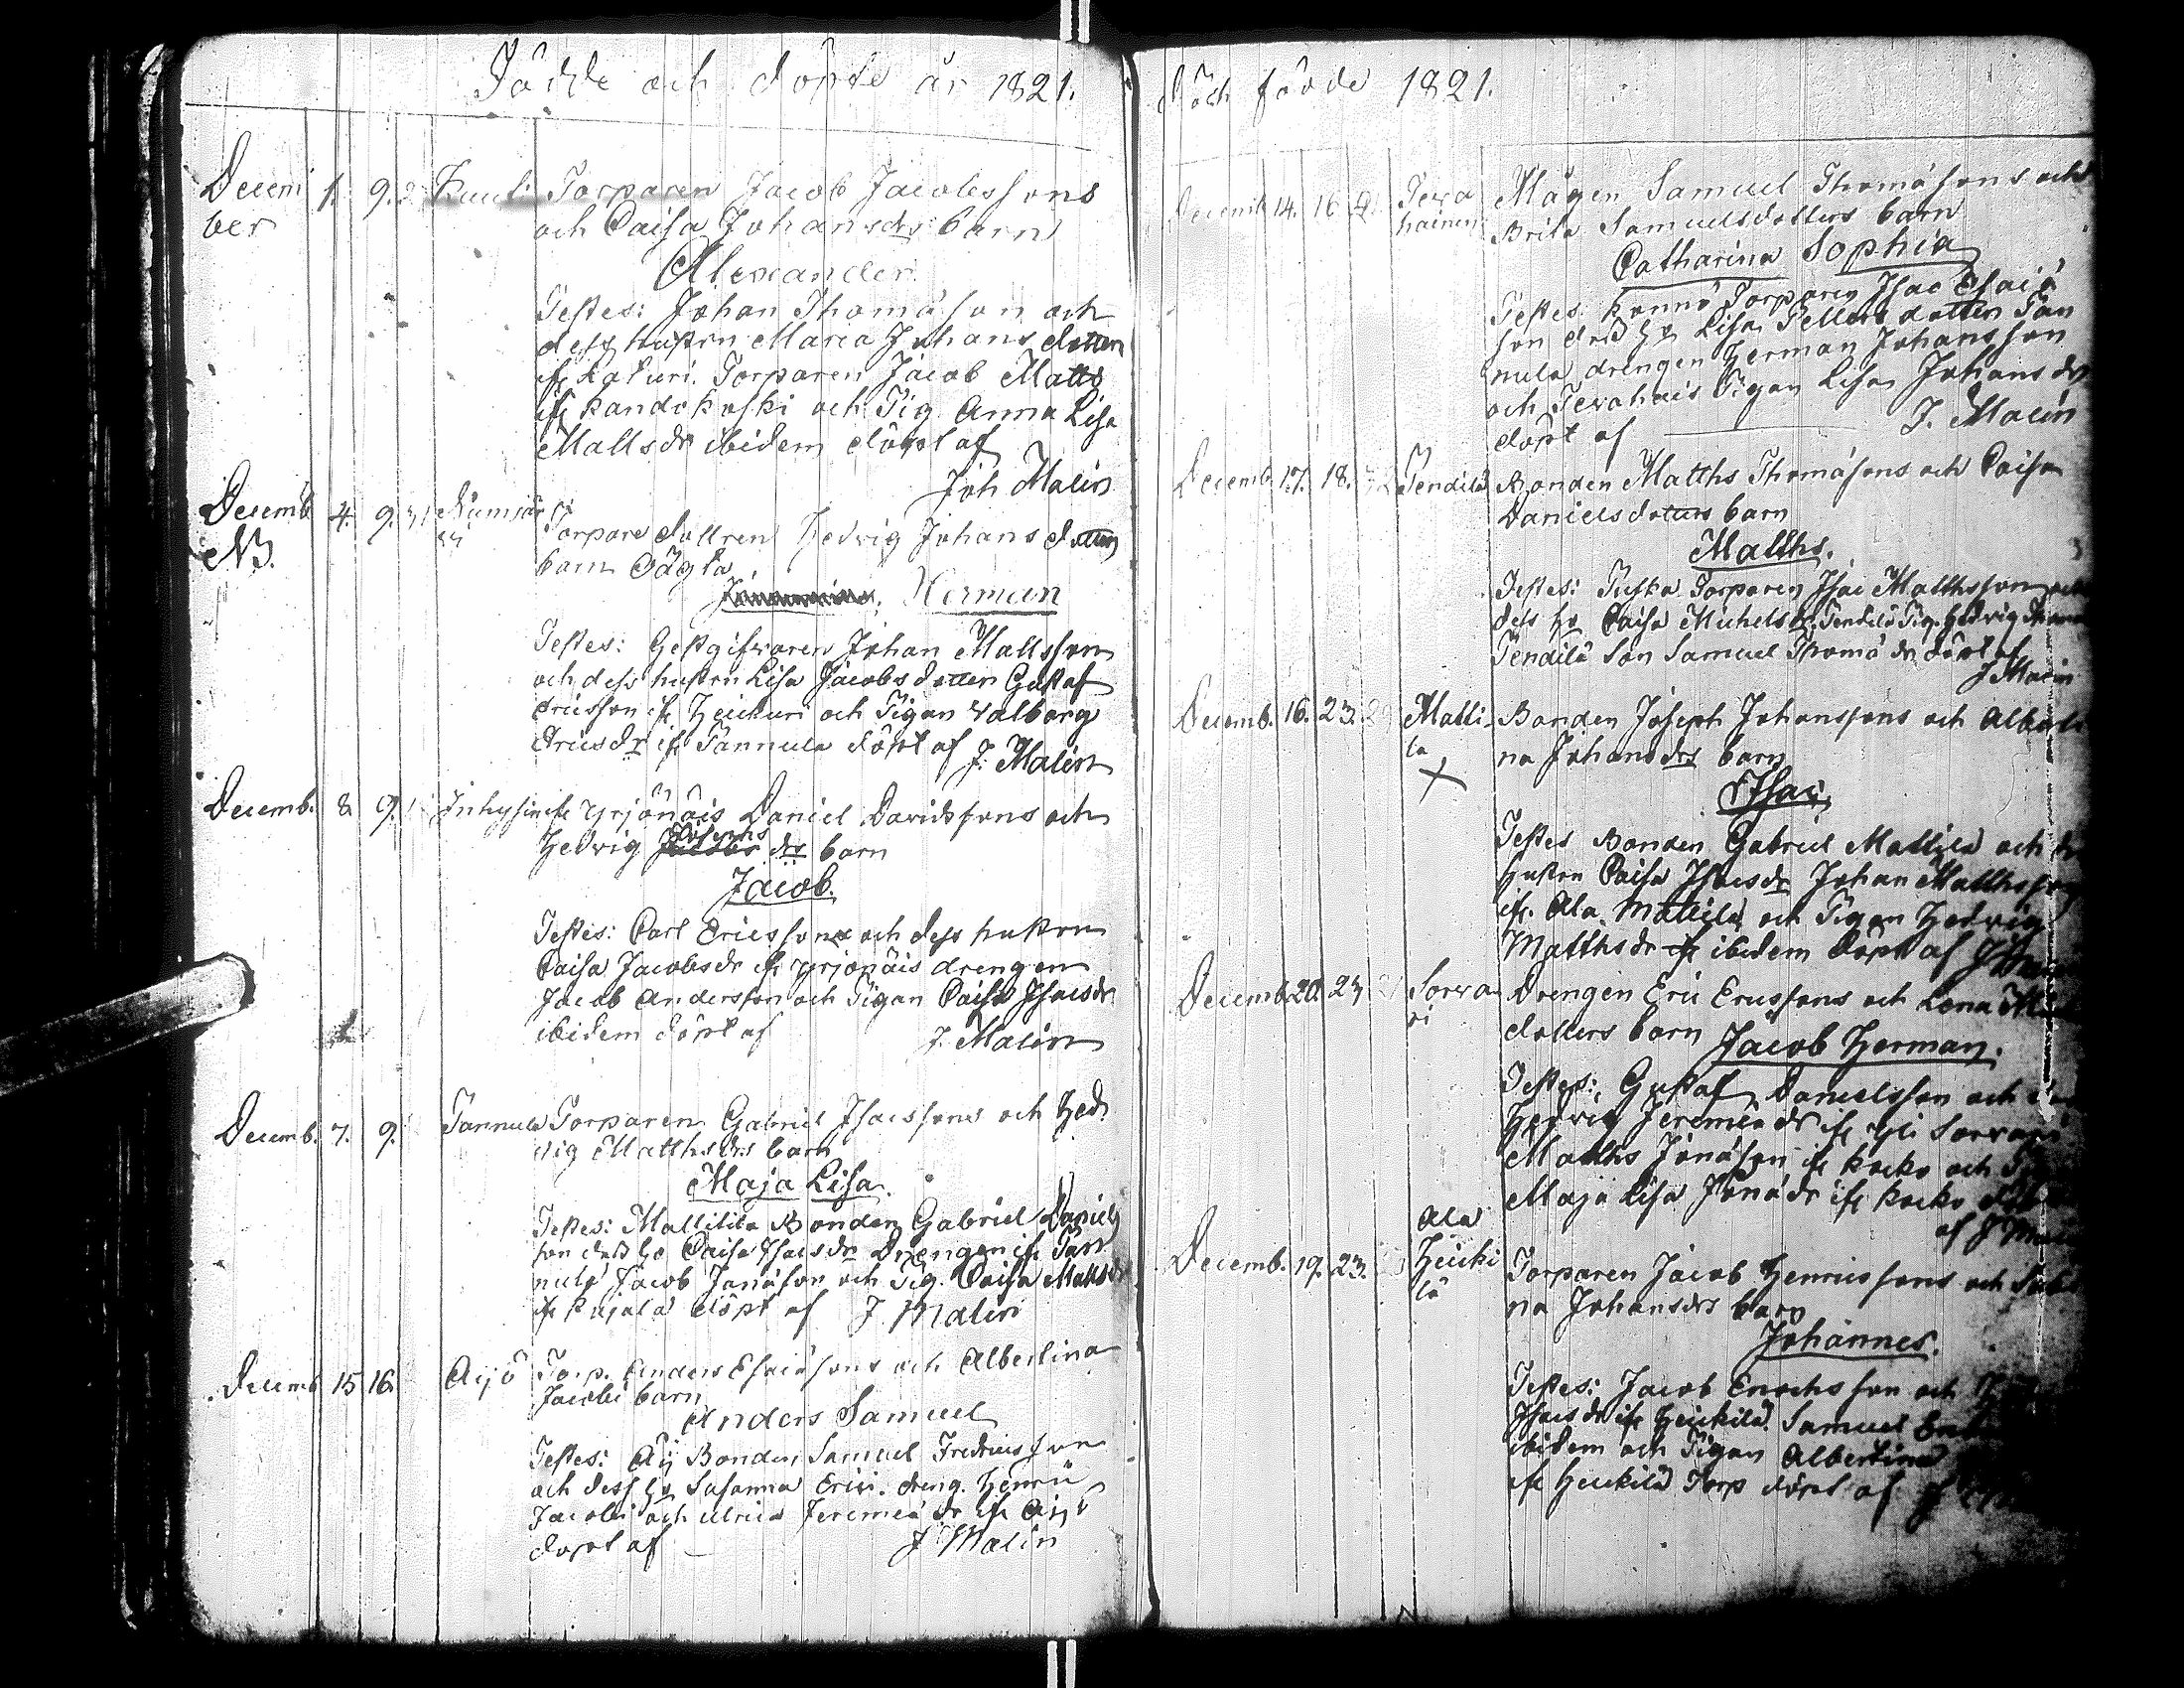 Födde och döpte år 1821.
Decem 1. 9. Kuuli Torparen Jacob Jacobssons
ber och Caisa Johansdrs barn
Alexander.
Testes: Johan Thomäson och
dess hustru Maria Johans dotter
ifr Torparen Jacob Matts
ifr Kandokoski och Pig. Anna Lisa
Mattsdr ibidem döpt af
Joh Malin
Decemb 4. 9. Numjär
NB. vi Torpare dottren Hedvig Johans dotters
barn Oägta
Herman
Testes: Gestgifvaren Johan Mattsson
och dess hustru Lisa Jacobs dotter Gustaf
Ericsson ifr Heickuri och Pigan Valborg
Ericsdr ifr Tannula döpt af J. Malin
Decemb. 8 9. Inhysin ifr Yrjönäis Daniel Davidssons och
Hedvig drs barn
Jacob.
Testes: Carl Ericsson och dess hustru
Caisa Jacobsdr ifr Yrjönäis drengen
Jacob Andersson och Pigan Caisa Isacsdr
ibidem döpt af J. Malin
Decemb. 7. 9. Tannula Torparen Gabriel Isacssons och Hed
vig Matthsdrs barn
Maja Lisa.
Testes: Mattilila Bonden Gabriel Daniels
son dess Ho Caisa Isacsdr Drengen ifr Tan
nula Jacob Jonäson och Pig. Caisa Mattsdr
ifr Kujala döpt af J. Malin
Decemb 15 16. Äijö Torp. Anders Esaiäsons och Albertina
Jacobi barn
Anders Samuel
Testes: Äij Bonden Samuel Fredricsson
och dess Ho Susanna Erici. dreng. Henric
Jacobi och Ulrica Jeremiä dr ifr Äijö
döpt af J Malin
Döch födde 1821.
Decemb. 14. 16 Terva Mågen Samuel Thomäsons och
hainen Brita Samuelsdotters barn
Catharina Sophia
Testes: Konnö Torparen Isac Esaiä
son dess Ho Lisa dotter Tan
nula drengen Herman Johansson
och Tervahais Pigan Lisa Johans dr
döpt af J. Malin
Decemb. 17. 18. Pendilä Bonden Matths Thomäsons och Caisa
Daniels doters barn
Matths.
Testes: Torparen Isac Matthsson och
dess Ho Caisa Michelsdr. Pendilä Pig. Hedvig
Pendilä Son Samuel Thomä döpt af
J Malin
Decemb. 16. 23. Matti- Bonden Joseph Johanssons och Alberti
la na Johansdrs barn
Isac
Testes Bonden Gabriel Mattila och
hustru Caisa Isacsdr Johan Matthsson
ifr. Ala Mattila och Pigan Hedvig
Matthsdr ibidem döpt af J
Decemb. 20. 23 Sorva Drengen Eric Ericssons och Lena
ri dotters barn Jacob Herman.
Testes: Gustaf Danielsson och
Hedvig Jeremiä dr ifr Yli Sorvari
Matths Jonäson ifr Kocko och
Maja Lisa Jonädr ifr Kocko
af J
Ala
Decemb. 19. 23. Heicki Torparen Jacob Henricssons och
lä na Johansdrs barn
Johannes.
Testes: Jacob Enochsson och
Isacsdr ifr Heickilä. Samuel
ibidem och Pigan Albertina
ifr Heickilä Torp döpt af J